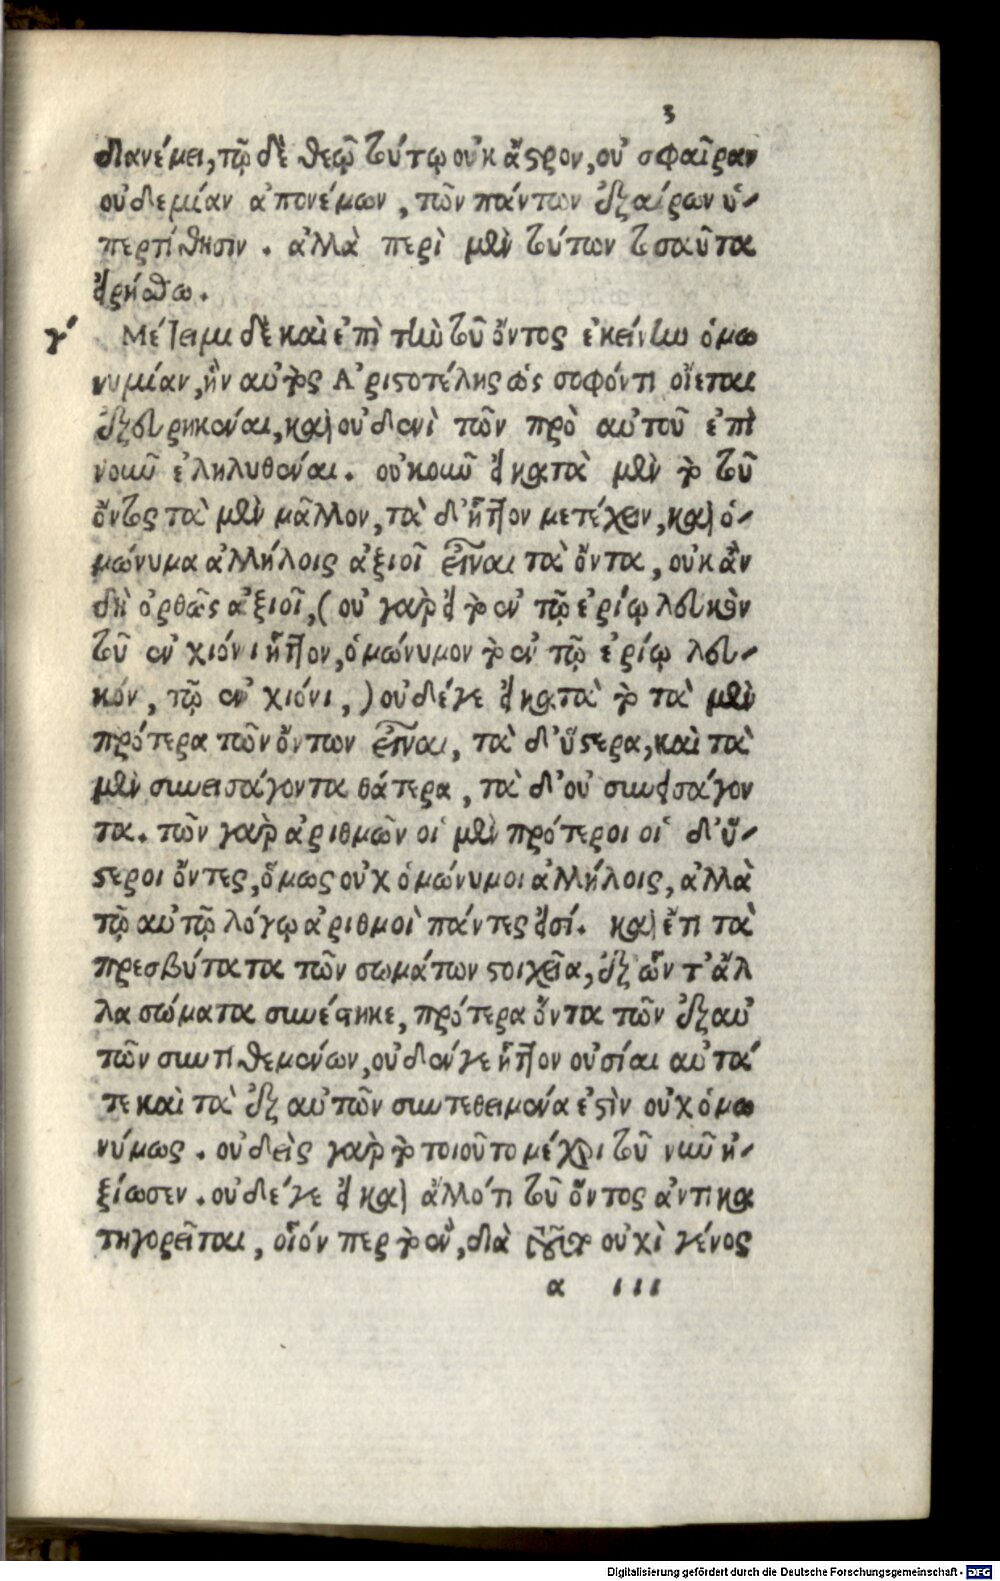 3
διανέμει, τῷ δὲ θεῷ τούτῳ οὐκ ἄστρον, οὐ σφαῖραν
οὐδεμίαν ἀπονέμων, τῶν πάντων ἐξαίρων ὑ-
περτίθησιν. ἀλλὰ περὶ μὲν τούτων τοσαῦτα
εἰρήσθω.
γ´ Μέτειμι δὲ καὶ ἐπὶ τὴν τοῦ ὄντος ἐκείνην ὁμω
νυμίαν, ἣν αὐτὸς Ἀριστοτέλης ὡς σοφόν τι οἴεται
ἐξευρηκέναι, καὶ οὐδενὶ τῶν πρὸ αὐτοῦ ἐπὶ
νοῦν ἐληλυθέναι. οὐκοῦν εἰ κατὰ μὲν τὸ τοῦ
ὄντος τὰ μὲν μᾶλλον, τὰ δ' ἧττον μετέχειν, καὶ ὁ-
μώνυμα ἀλλήλοις ἀξιοῖ εἶναι τὰ ὄντα, οὐκ ἂν
δὴ ὀρθῶς ἀξιοῖ, (οὐ γὰρ εἰ τὸ ἐν τῷ ἐρίῳ λευκὸν
τοῦ ἐν χιόνι ἧττον, ὁμώνυμον τὸ ἐν τῷ ἐρίῳ λευ-
κόν, τῷ ἐν χιόνι,) οὐδέ γε εἰ κατὰ τὸ τὰ μὲν
πρότερα τῶν ὄντων εἶναι, τὰ δ' ὕστερα, καὶ τὰ
μὲν συνεισάγοντα θάτερα, τὰ δ' οὐ συνεισάγον
τα. τῶν γὰρ ἀριθμῶν οἱ μὲν πρότεροι οἱ δ' ὕ-
στεροι ὄντες, ὅμως οὐχ ὁμώνυμοι ἀλλήλοις, ἀλλὰ
τῷ αὐτῷ λόγῳ ἀριθμοὶ πάντες εἰσί. καὶ ἔτι τὰ
πρεσβύτατα τῶν σωμάτων στοιχεῖα, ἐξ ὧν τ' ἄλ
λα σώματα συνέστηκε, πρότερα ὄντα τῶν ἐξ αὐ
τῶν συντιθεμένων, οὐδέν γε ἧττον οὐσίαι αὐτά
τε καὶ τὰ ἐξ αὐτῶν συντεθειμένα ἐστὶν οὐχ ὁμω
νύμως. οὐδεὶς γὰρ τὸ τοιοῦτο μέχρι τοῦ νῦν ἠ-
ξίωσεν. οὐδέ γε εἰ καὶ ἄλλό τι τοῦ ὄντος ἀντικα
τηγορεῖται, οἷόν περ τὸ ἕν, διὰ τοῦτο οὐχὶ γένος
α ιιι
Digitalisierung gefördert durch die Deutsche Forschungsgemeinschaft - DFG